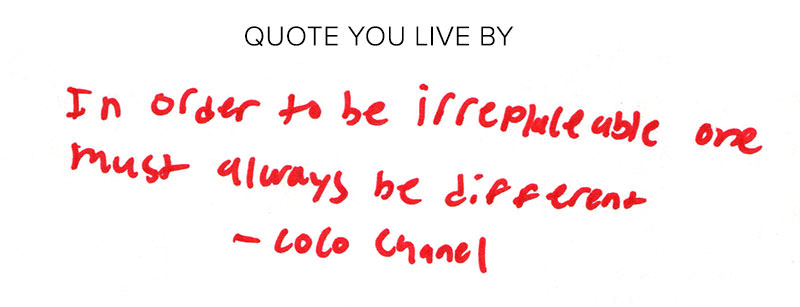 QUOTE YOU LIVE BY
In order to be irreplaceable one
must always be different
- Coco Chanel